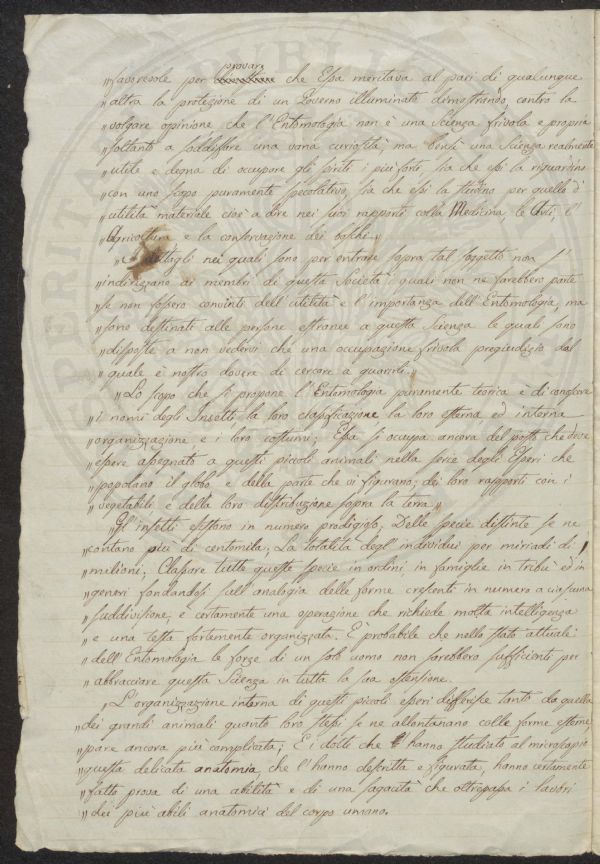 provare
„favorevole per che Essa meritava al pari di qualunque
„altra la protezione di un Governo illuminato dimostrando contro la
„volgare opinione che l'Entomologia non è una Scienza frivola e propria
„soltanto a soddisfare una vana curiosità; ma bensì una Scienza realmente
„utile e degna di occupare gli spiriti i più forti, sia che essi la riguardino
„con uno scopo puramente specolativo, sia che essi la studino per quello d'
„utilità materiale cioè a dire nei suoi rapporti colla Medicina, le Arti, l'
„Agricoltura e la conservazione dei boschi„
„I dettagli nei quali sono per entrare sopra tal soggetto non s'
„indirizzano ai membri di questa Società i quali non ne farebbero parte
„se non fossero convinti dell'utilità e l'importanza dell'Entomologia, ma
„sono destinati alle persone estranee a questa Scienza le quali sono
„disposte a non vedervi che una occupazione frivola pregiudizio dal
„quale è nostro dovere di cercare a guarirli.„
„Lo scopo che si propone l'Entomologia puramente teorica è di conoscere
„i nomi degli Insetti la loro classificazione la loro esterna ed interna
„organizzazione e i loro costumi; Essa si occupa ancora del posto che deve
„essere assegnato a questi piccoli animali nella serie degli Esseri che
„popolano il globo e della parte che vi figurano; dei loro rapporti con i
„vegetabili e della loro distribuzione sopra la terra„
„Gl'insetti esistono in numero prodigioso, Delle specie distinte se ne
„contano più di centomila; La totalità degl'individui per miriadi di
„milioni; Classare tutte queste specie in ordini in famiglie in tribù ed in
„generi fondandosi sull'analogia delle forme crescenti in numero a ciascuna
„suddivisione, è certamente una operazione che richiede molta intelligenza
„e una testa fortemente organizzata. È probabile che nello stato attuale
„dell'Entomologia le forze di un solo uomo non sarebbero sufficienti per
„abbracciare questa Scienza in tutta la sua estensione.
„L'organizzazione interna di questi piccoli esseri differisce tanto da quella
dei grandi animali quanto loro stessi se ne allontanano colle forme esterne,
„pare ancora più complicata; E i dotti che hanno studiato al microscopio
„questa delicata anatomia, che l'hanno descritta e figurata, hanno certamente
„fatto prova di una abilità e di una sagacità che oltrepassa i lavori
„dei più abili anatomici del corpo umano.